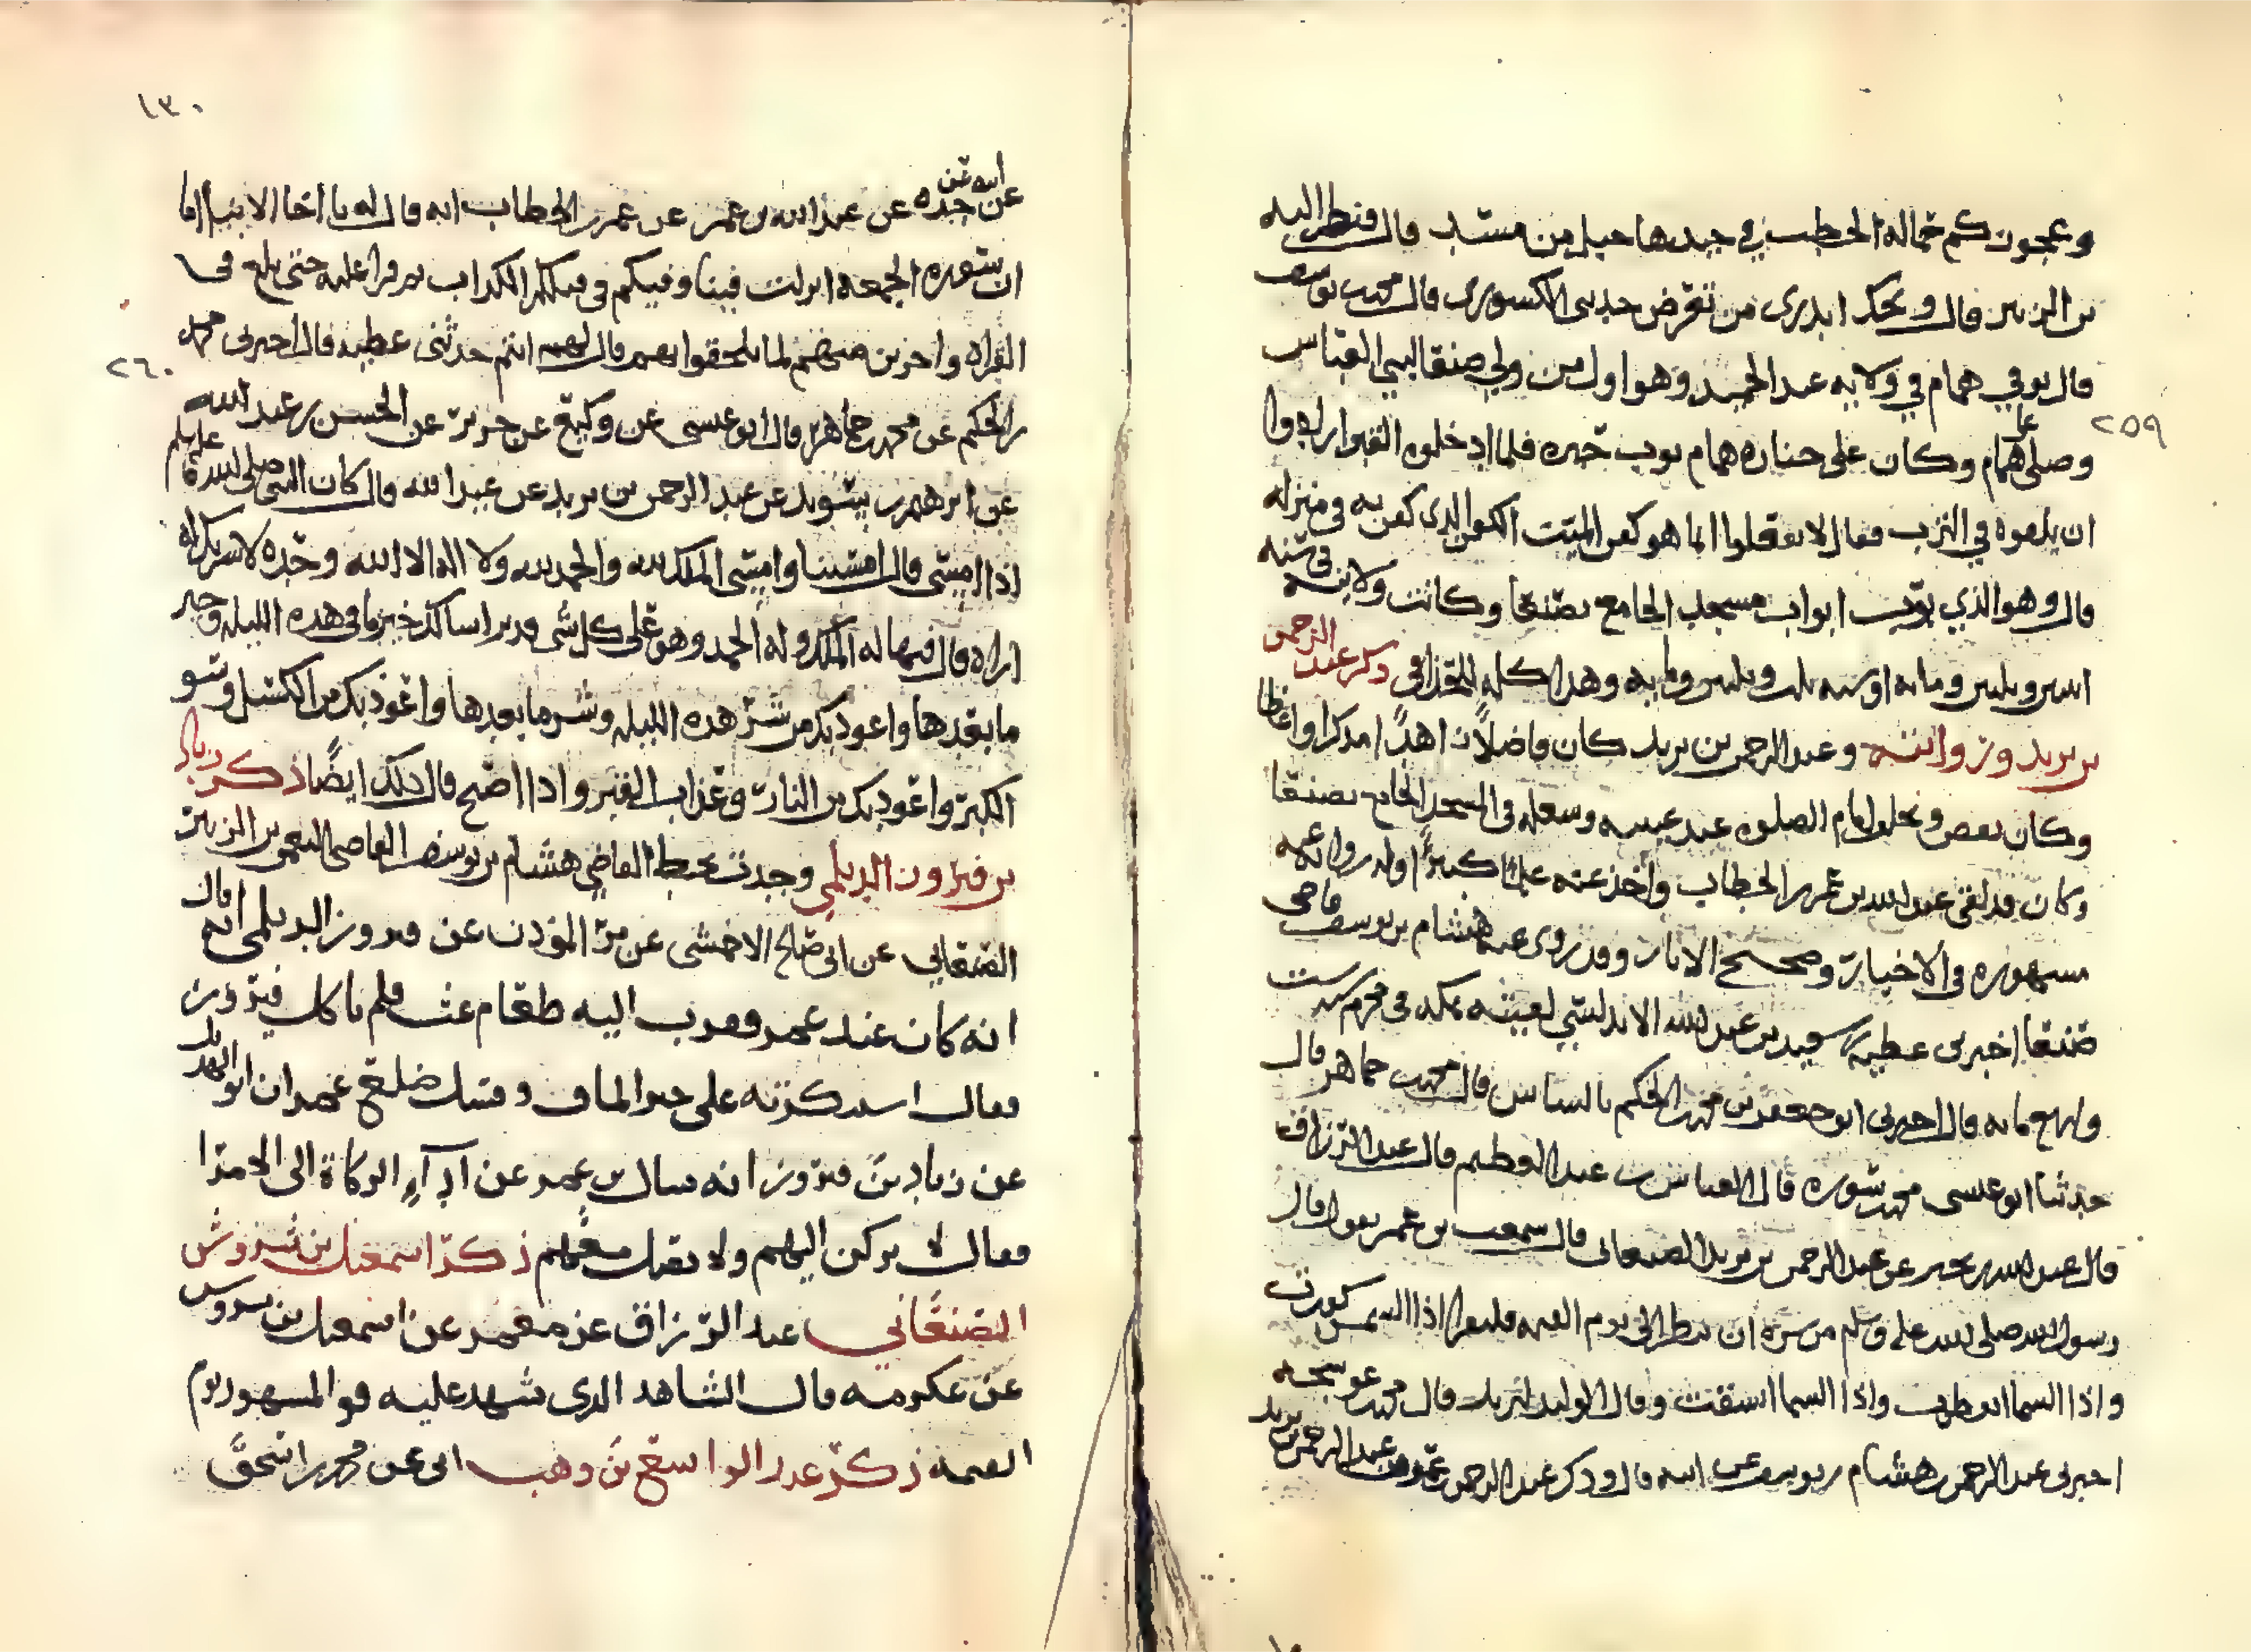 وعجوزكم حمالة الحطب في جيدها حبل من مسد قال فنظر اليه
بن الزبير قال ويحك اتدري من تعرض حدثني الكشوري قال محمد بن يوسف
قال توفي همام في ولاية عبد الحميد وهو اول من ولي صنعا لبني العباس
٢٥٩
وصلى على همام وكان على جنازة همام ثوب حبره فلما ادخلوه القبر ارادوا
ان يلقوه في الترب فقال لا تفعلوا انما هو كفن الميت الكفن الذي كفن به في منزله
قال وهو الذي بوب ابواب مسجد الجامع بصنعا وكانت ولايته في سنه
اثنين وثلثين ومايه او سنه ثلث وثلثين ومايه وهذا كله ذكر عبد الرحمن
بن يزيد وروايته وعبد الرحمن بن يزيد كان فاضلاً زاهداً مذكرا واعظا
وكان يقص
وكان قد لقي عبد الله بن عمر بن الخطاب واخذ عنه علماً كبيرًا وله رواية عنه
مشهوره في الاخبار وصحيح الاثار وقد روى عنه هشام بن يوسف قاضي
صنعا اخبرني عطية بن سعيد بن عبد الله الاندلسي لقيته بمكه في محرم سنه ست
واربع مايه قال اخبرني ابو جعفر بن محمد بن الحكم قال محمد جماهر قال
حدثنا ابو عيسى محمد بن سوره قال العباس بن عبد العظيم قال عبد الرزاق
قال عبد الله بن بحير عن عبد الرحمن بن يزيد الصنعاني قال سمعت بن عمر يقول قال
رسول الله صلى الله عليه وسلم من سره ان ينظر الى يوم القيمه فليقرا اذا الشمس كورت
واذا السما انفطرت واذا السما انشقت وقال الوليد بن يزيد قال
اخبرني عبد الرحمن بن هشام بن يوسف عن ابيه قال وذكر عبد الرحمن بن عمر وهو عبد الرحمن بن يزيد
١٣٠
عن ابيه عن جده عن عبد الله بن عمر عن عمر بن الخطاب انه قال له يا اخا الابنا اما
ان سورة الجمعة انزلت فينا وفيكم في قتلكم الكذاب ثم قرا عليه حتى بلغ في
القراه واخرين منهم لما يلحقوا بهم قال لهم انتم حدثني عطيه قال اخبرني محمد
٢٦٠
بن الحكم عن محمد جماهر قال ابو عيسى عن وكيع عن جرير عن الحسن بن عبيد الله
عن ابرهيم بن سويد عن عبد الرحمن بن يزيد عن عبد الله قال كان النبي صلى الله عليه وسلم
اذا امسى قال امسينا وامسى الملك لله والحمد لله ولا اله الا الله وحده لا شريك له
اراه قال فيها له الملك وله الحمد وهو على كل شي قدير اسالك خير ما في هذه الليله وخير
ما بعدها واعوذ بك من شر هذه الليله وشر ما بعدها واعوذ بك من الكسل وسو
الكبر واعوذ بك من النار وعذاب القبر واذا اصبح قال ذلك ايضًا ذكر زياد
بن فيروز الديلمي وجدت بخط القاضي هشام بن يوسف القاضي النعمن بن الزبير
الصنعاني عن ابي صالح الاحمسي عن مر المؤذن عن فيروز الديلمي انه قال
انه كان عند عمر فقرب اليه طعام غث فلم ياكل فيروز
فقال
عن زياد بن فيروز انه سال بن عمر عن ادآء الزكاة الى الامرا
فقال لا تركن اليهم ولا تصل معهم ذكر اسمعيل بن شروش
الصنعاني عبد الرزاق عن معمر عن اسمعيل بن شروس
عن عكرمه قال الشاهد الذي شهد عليه هو المشهود يوم
القيمه ذكر عبد الواسع بن وهب ابي عن محمد بن اسحق